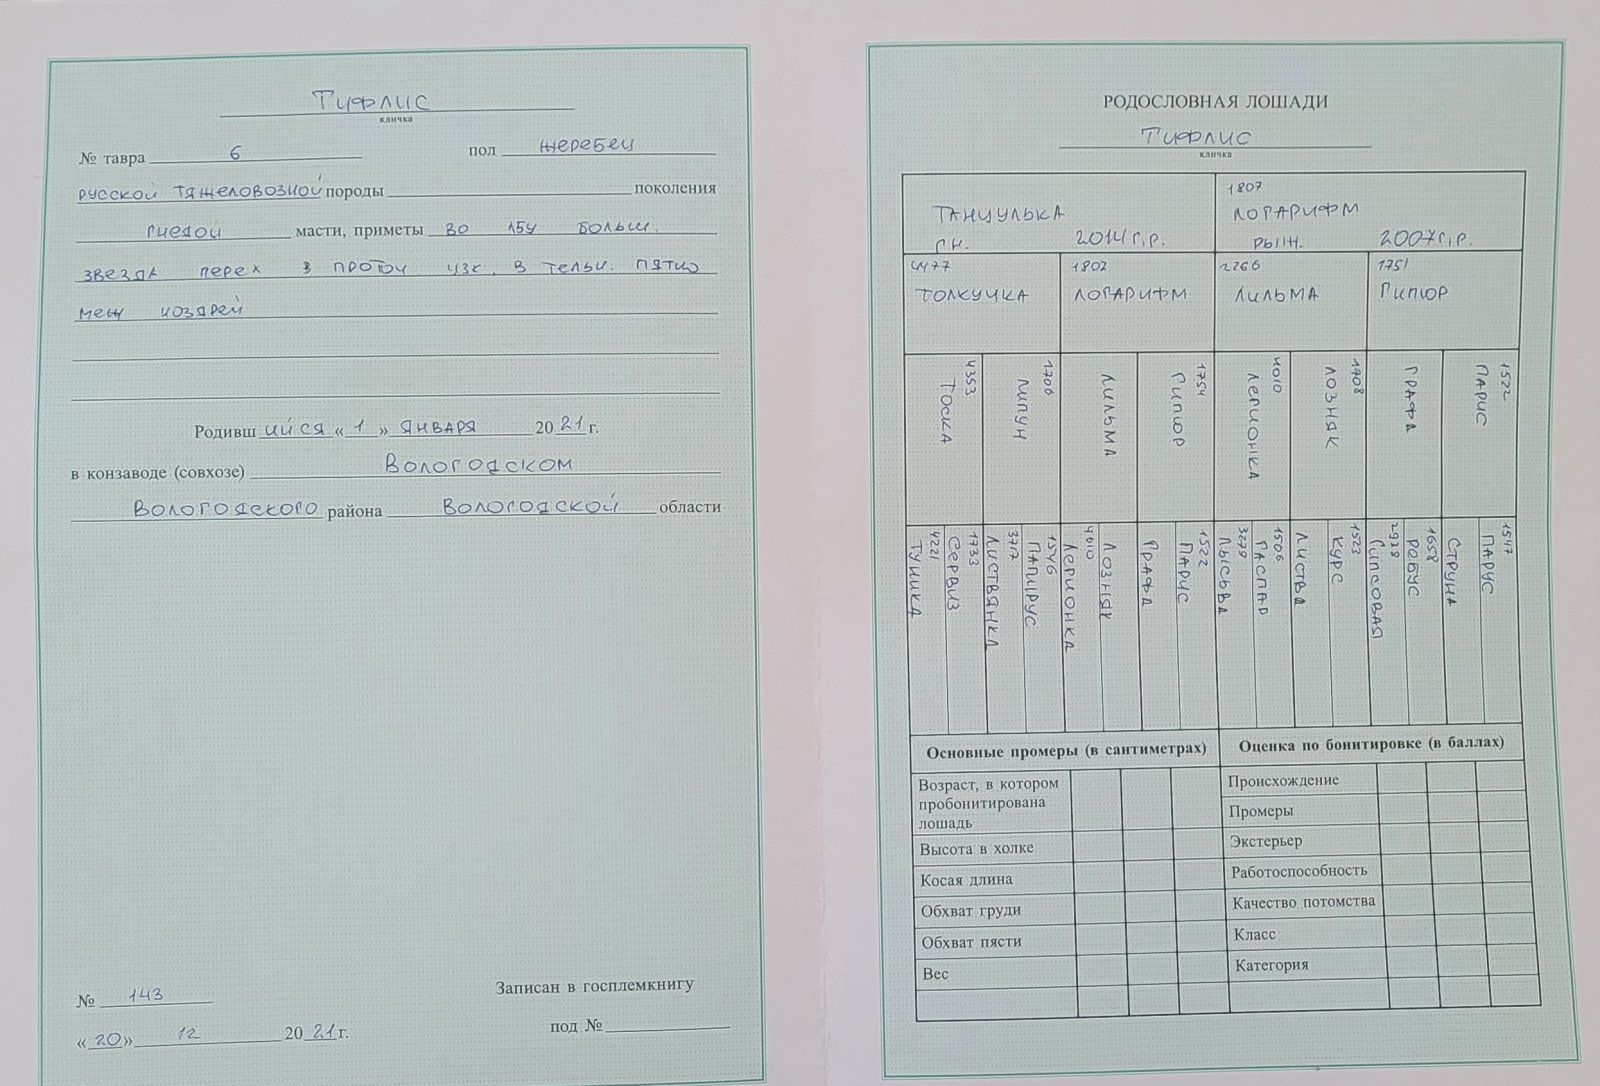 Тифлис
кличка
№ тавра 6 пол жеребец
русской тяжеловозной породы поколения
гнедой масти, приметы во лбу больш.
звезда перех в проточ узк. в тельн. пятно
меж ноздрей
Родивш ийся « 1 » января 20 21 г.
в конзаводе (совхозе) Вологодском
Вологодского района Вологодской области
№ 143
Записан в госплемкнигу
« 20 » 12 20 21 г.
под №
РОДОСЛОВНАЯ ЛОШАДИ
Тифлис
кличка
ТАНЦУЛЬКА
гн. 2014 г.р.
1807
ЛОГАРИФМ
рыж. 2007 г.р.
4477
ТОЛКУЧКА
1802
ЛОГАРИФМ
2266
ЛИЛЬМА
1751
ГИПЮР
4353
ТОСКА
1706
ЛИПУН
ЛИЛЬМА
1754
ГИПЮР
4010
ЛЕГИОНКА
1708
ЛОЗНЯК
ГРАФА
1522
ПАРИС
4221
ТУНИКА
1733
СЕРВИЗ
3717
ЛИСТВЯНКА
1546
ПАПИРУС
4010
ЛЕГИОНКА
ЛОЗНЯК
ГРАФА
1522
ПАРИС
3279
ЛЫСЬВА
1506
ГАСПАР
ЛИСТВА
1523
КУРС
2928
ГИПСОВАЯ
1658
РЕБУС
СТРУНА
1547
ПАРУС
Основные промеры (в сантиметрах)
Возраст, в котором
пробонитирована
лошадь
Высота в холке
Косая длина
Обхват груди
Обхват пясти
Вес
Оценка по бонитировке (в баллах)
Происхождение
Промеры
Экстерьер
Работоспособность
Качество потомства
Класс
Категория